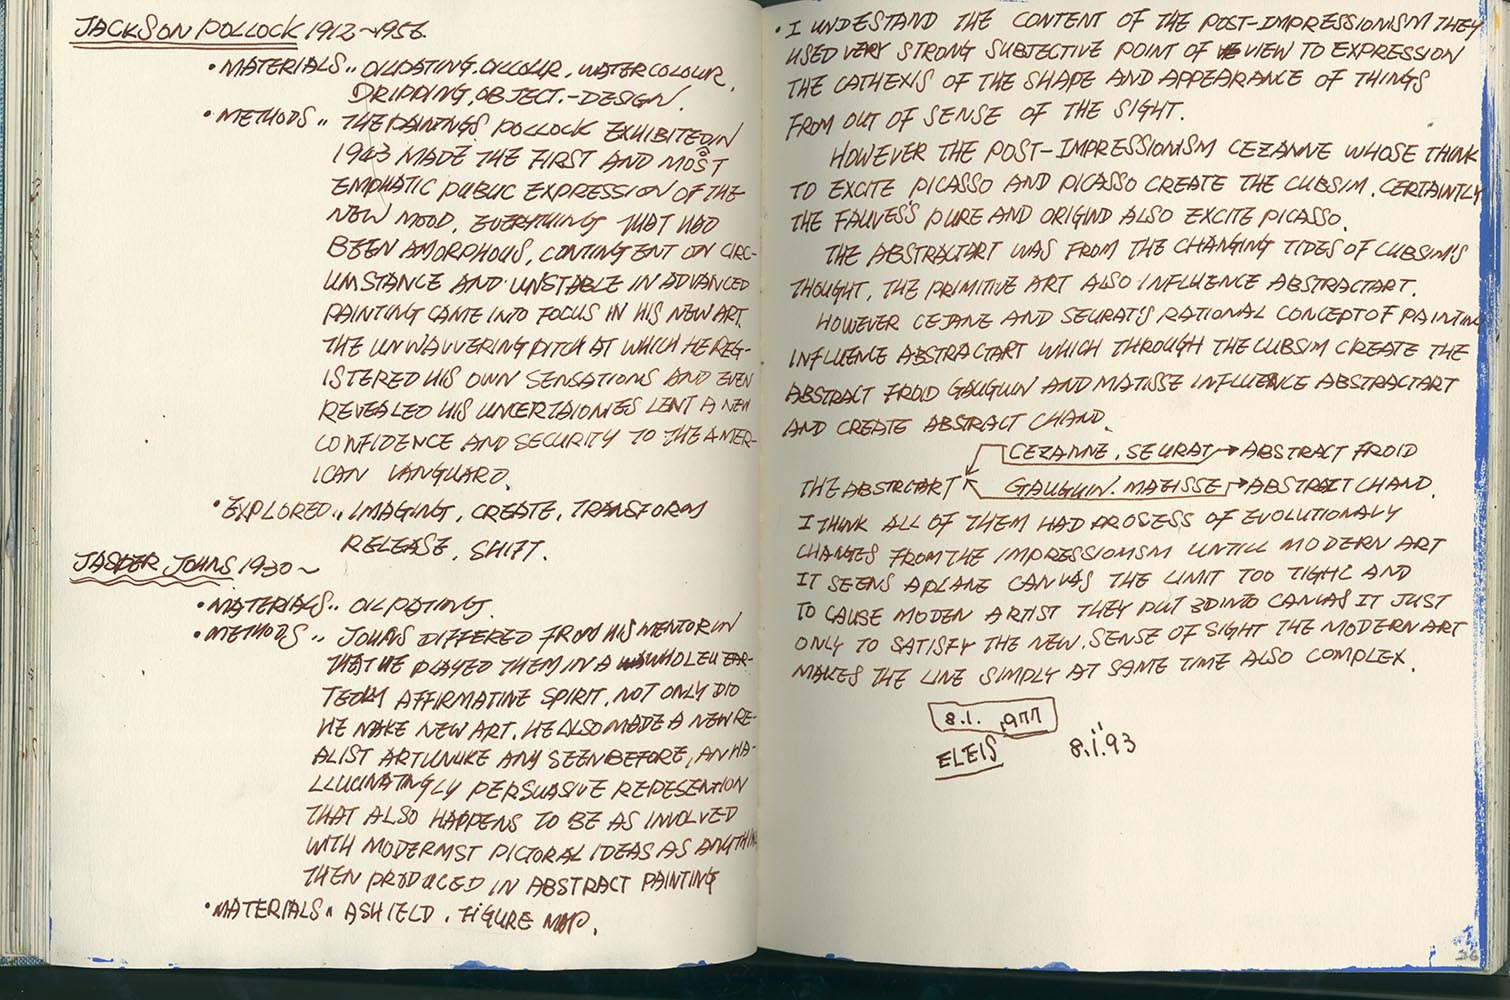 JACKSON POLLOCK 1912~1956.
• MATERIALS.. OILPATING. OILCOLUR, WATERCOLOUR,
DRIPPING, OBJECT.-DESIGN.
• METHODS.. THE PAINTINGS POLLOCK EXHIBITED IN
1943 MADE THE FIRST AND MOST
EMPHATIC PUBLIC EXPRESSION OF THE
NEW MOOD. EVERYTHING THAT HAD
BEEN AMORPHOUS, CONTINGENT ON CIRC-
UMSTANCE AND UNSTABLE IN ADVANCED
PAINTING CAME INTO FOCUS IN HIS NEW ART.
THE UNWAVVERING PITCH AT WHICH HE REG-
ISTERED HIS OWN SENSATIONS AND EVEN
REVEALED HIS UNCERTAIONIES LENT A NEW
CONFIDENCE AND SECURITY TO THE AMER-
ICAN VANGUARD.
• EXPLORED.. IMAGING, CREATE, TRANSFORM
RELEASE, SHIFT.
JASPER JOHNS 1930~
• MATERIALS.. OILPATING.
• METHODS.. JOHNS DIFFERED FROM HIS MENTOR IN
THAT HE PLAYED THEM IN A WHOLEHEAR-
TEDLY AFFIRMATINE SPIRIT. NOT ONLY DID
HE MAKE NEW ART. HE ALSO MADE A NEW RE-
ALIST ART UNLIKE ANY SEEN BEFORE, AN HA-
LLUCINATINGLY PERSUASIVE REPRESENTION
THAT ALSO HAPPENS TO BE AS INVOLVED
WITH MODERNIST PICTORAL IDEAS AS ANYTHING
THEN PRODUCED IN ABSTRACT PAINTING
• MATERIALS.. A SHIELD. FIGURE MAP.
• I UNDESTAND THE CONTENT OF THE POST-IMPRESSIONISM THEY
USED VERY STRONG SUBJECTIVE POINT OF VIEW TO EXPRESSION
THE CATHEXIS OF THE SHAPE AND APPEARANCE OF THINGS
FROM OUT OF SENSE OF THE SIGHT.
HOWEVER THE POST-IMPRESSIONISM CEZANNE WHOSE THINK
TO EXCITE PICASSO AND PICASSO CREATE THE CUBSIM. CERTAINTLY
THE FAUVES'S PURE AND ORIGIND ALSO EXCITE PICASSO.
THE ABSTRACTART WAS FROM THE CHANGING TIDES OF CUBSIM'S
THOUGHT, THE PRIMITIVE ART ALSO INFLUENCE ABSTRACTART.
HOWEVER CEZANE AND SEURAT'S RATIONAL CONCEPT OF PAINTING
INFLUENCE ABSTRACTART WHICH THROUGH THE CUBSIM CREATE THE
ABSTRACT FROID GAUGUIN AND MATISSE INFLUENCE ABSTRACTART
AND CREATE ABSTRACT CHAND.
CEZANNE, SEURAT → ABSTRACT FROID
THE ABSTRCTART
GAUGUIN. MATISSE → ABSTRACT CHAND.
I THINK ALL OF THEM HAD PROCESS OF EVOLUTIONALY
CHANGES FROM THE IMPRESSIOMISM UNTILL MODERN ART
IT SEENS A PLANE CANVAS THE LIMIT TOO TIGHL AND
TO CAUSE MODEN ARTIST THEY PUT 3D INTO CANVAS IT JUST
ONLY TO SATISFY THE NEW. SENSE OF SIGHT THE MODERN ART
MAKES THE LINE SIMPLY AT SAME TIME ALSO COMPLEX.
8.1.
ELEIS 8.1.93
26